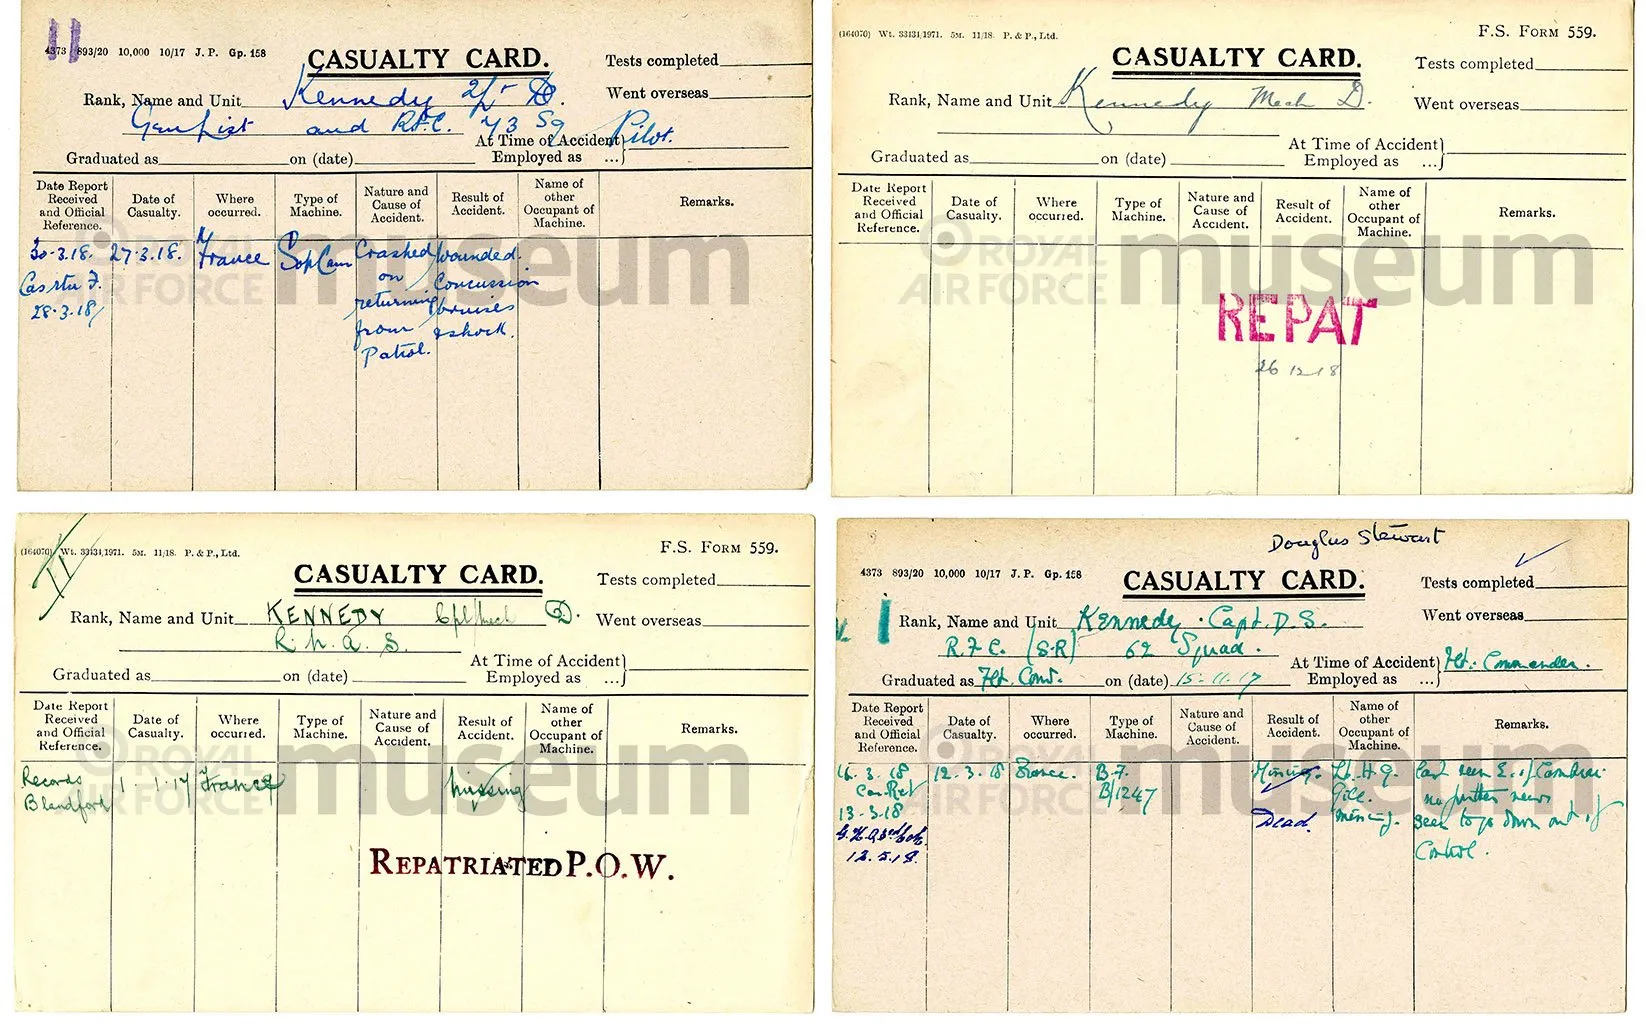 4373 893/20 10,000 10/17 J. P. Gp. 158
CASUALTY CARD.
Tests completed
Rank, Name and Unit Kennedy 2/Lt D.
Went overseas
Gen List and R.F.C. 73 Sq
At Time of Accident Employed as ... Pilot.
Graduated as on (date)
Date Report Received and Official Reference.
Date of Casualty.
Where occurred.
Type of Machine.
Nature and Cause of Accident.
Result of Accident.
Name of other Occupant of Machine.
Remarks.
30-3.18.
28.3.18
27.3.18.
France
Sop Cam
Crashed
on
returning
from
Patrol.
Wounded.
Concussion
bruises
& shock.
ROYAL AIR FORCE museum
(164070) Wt. 33434/1971. 5M. 11/18. P. & P., Ltd.
F.S. FORM 559.
CASUALTY CARD.
Tests completed
Rank, Name and Unit Kennedy Mech D.
Went overseas
At Time of Accident Employed as ...
Graduated as on (date)
Date Report Received and Official Reference.
Date of Casualty.
Where occurred.
Type of Machine.
Nature and Cause of Accident.
Result of Accident.
Name of other Occupant of Machine.
Remarks.
ROYAL AIR FORCE museum
REPAT
26 12 18
(164070) Wt. 33434/1971. 5M. 11/18. P. & P., Ltd.
F.S. FORM 559.
CASUALTY CARD.
Tests completed
Rank, Name and Unit KENNEDY Cpl Mech D.
Went overseas
R.N.A.S.
At Time of Accident Employed as ...
Graduated as on (date)
Date Report Received and Official Reference.
Date of Casualty.
Where occurred.
Type of Machine.
Nature and Cause of Accident.
Result of Accident.
Name of other Occupant of Machine.
Remarks.
Records
Blandford
1.1.17
France
Missing
ROYAL AIR FORCE museum
REPATRIATED P.O.W.
Douglas Stewart
4373 893/20 10,000 10/17 J. P. Gp. 158
CASUALTY CARD.
Tests completed
Rank, Name and Unit Kennedy. Capt. D.S.
Went overseas
R.F.C. (S.R) 62 Squad.
At Time of Accident Employed as ... Flt. Commander.
Graduated as Flt. Com. on (date) 15-11-17
Date Report Received and Official Reference.
Date of Casualty.
Where occurred.
Type of Machine.
Nature and Cause of Accident.
Result of Accident.
Name of other Occupant of Machine.
Remarks.
16.3.18
13-3-18
12.5.18.
12.3.18
France.
B.F.
B/1247
Missing.
Dead.
Lt. H.G.
Gill.
missing.
Last seen E. of Cambrai
no further news
Seen to go down out of
Control.
ROYAL AIR FORCE museum